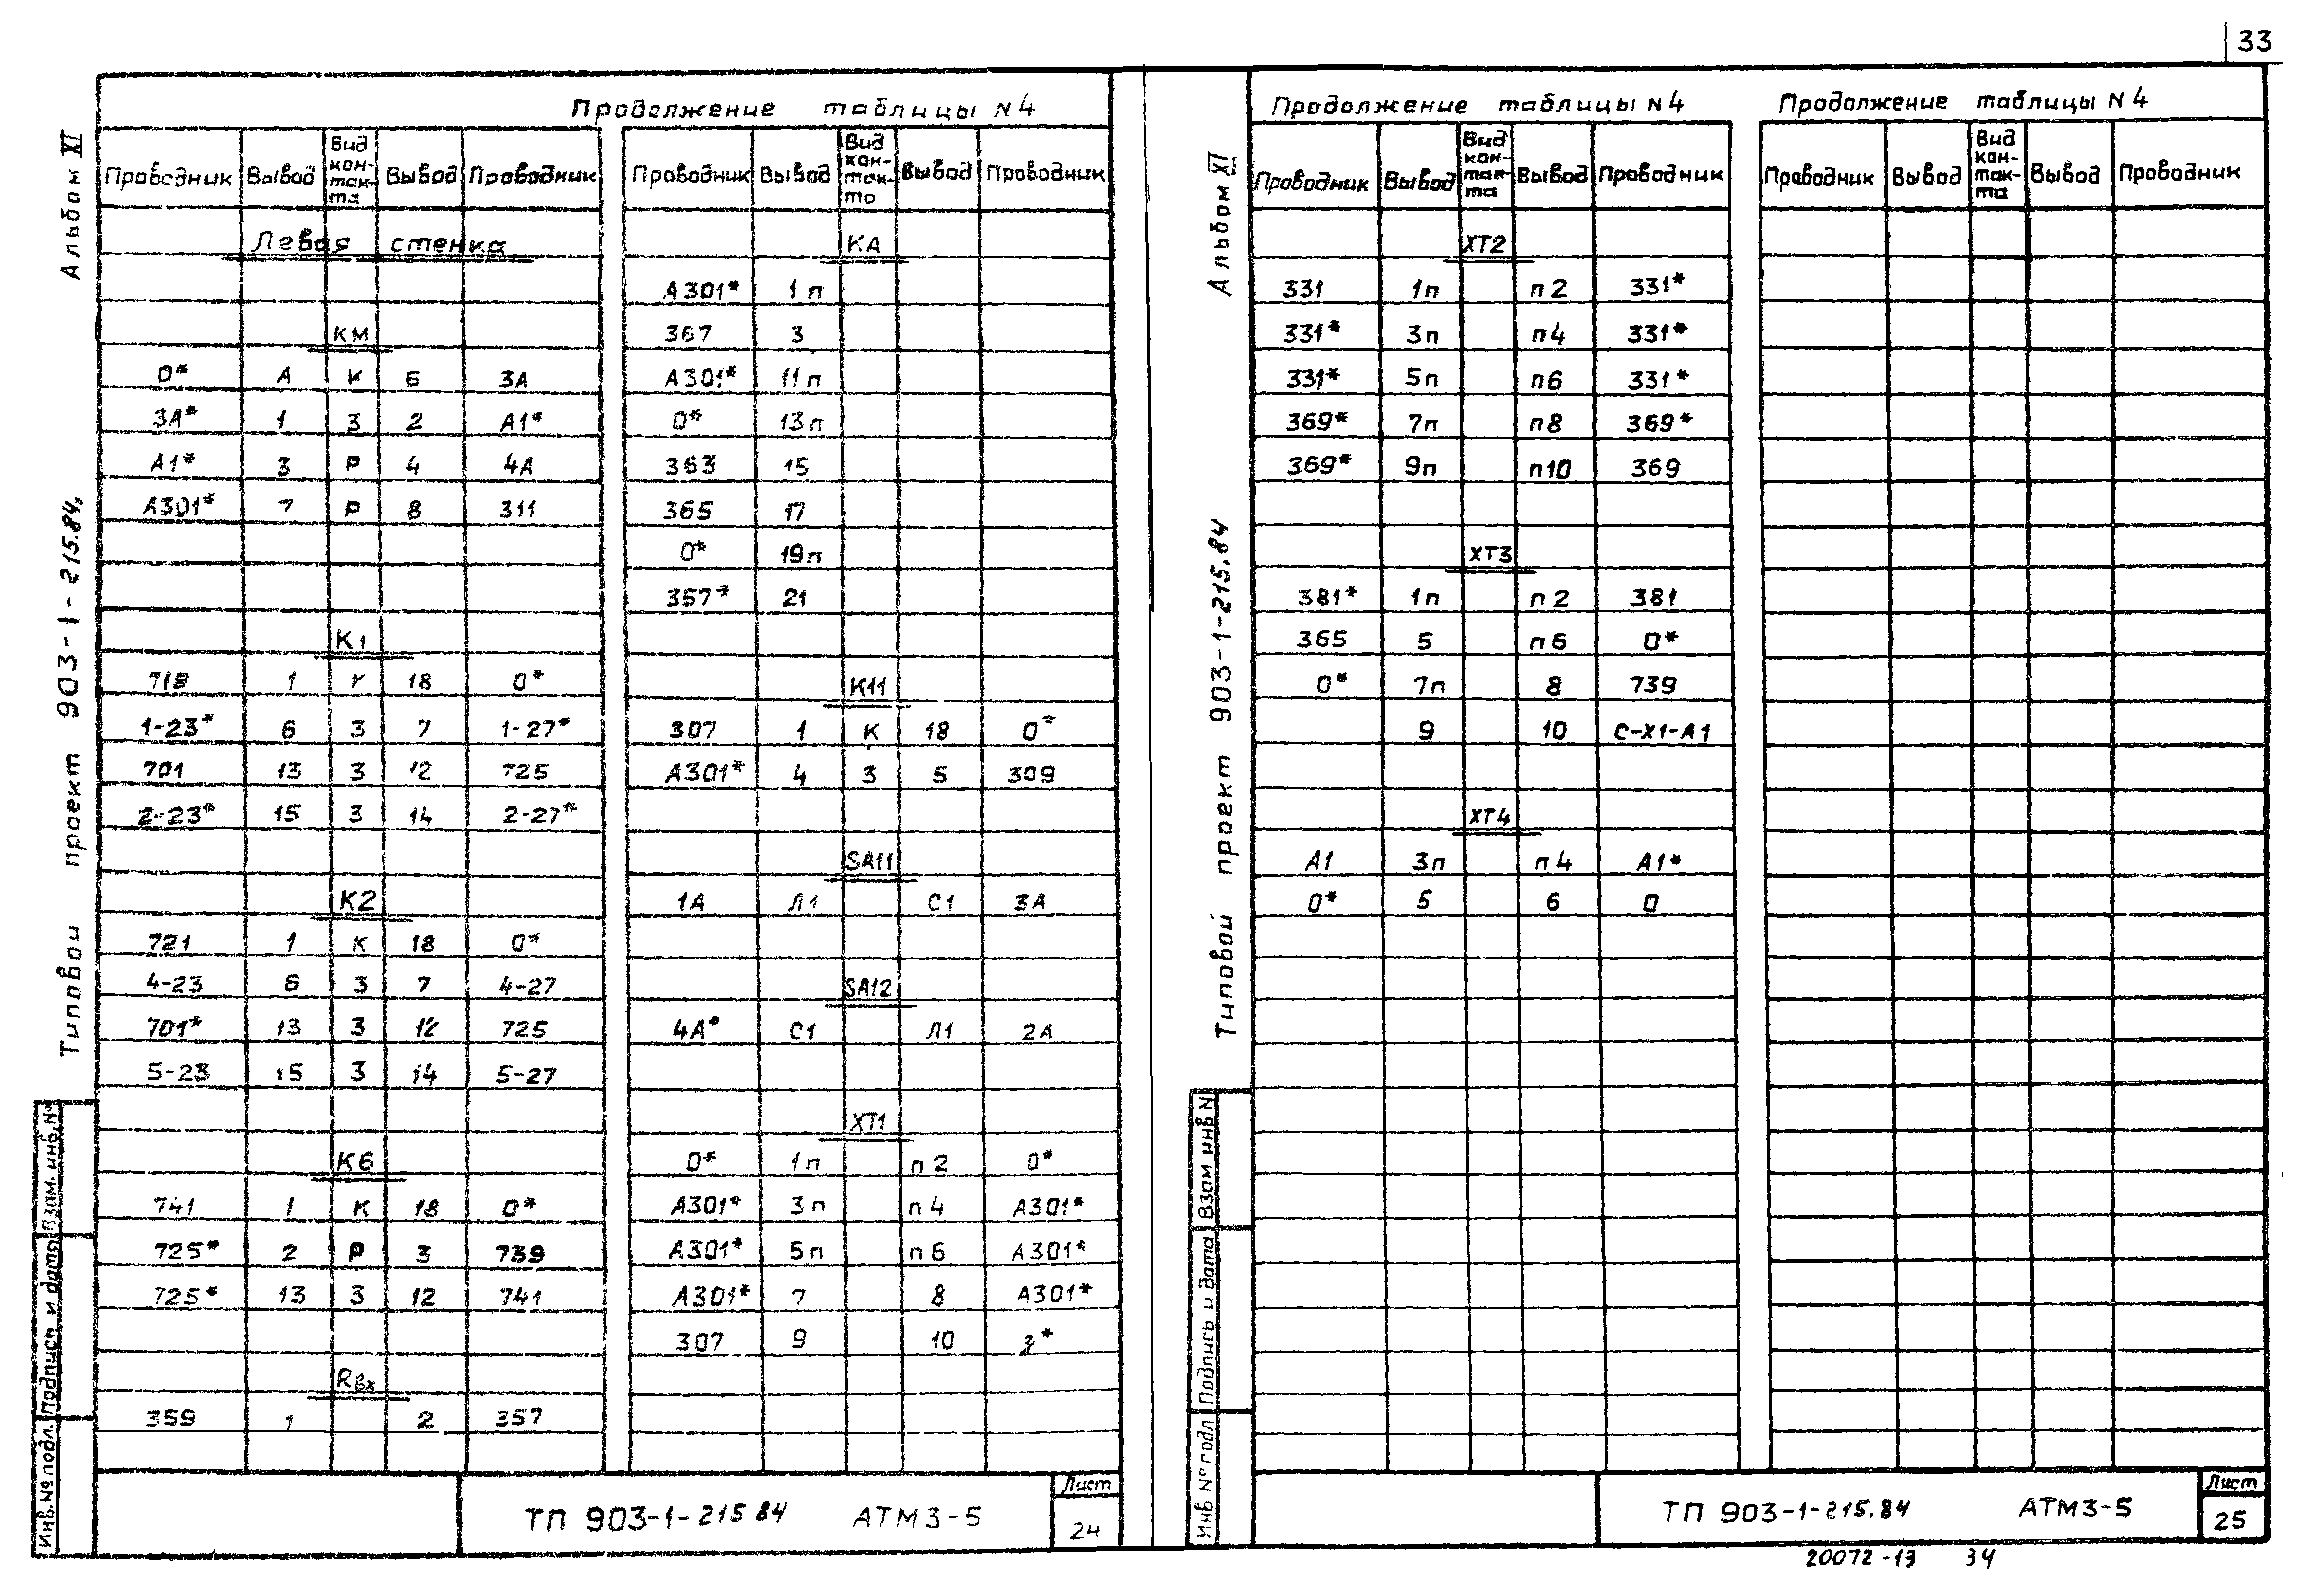 33
Альбом XI
Типовой проект 903-1-215.84,
Продолжение таблицы N 4
Проводник Вывод Вид кон-так-та Вывод Проводник
Левая стенка
КМ
0* А К 6 3А
3А* 1 З 2 А1*
А1* 3 Р 4 4А
А301* 7 Р 8 311
К1
719 1 К 18 0*
1-23* 6 З 7 1-27*
701 13 З 12 725
2-23* 15 З 14 2-27*
К2
721 1 К 18 0*
4-23 6 З 7 4-27
701* 13 З 12 725
5-23 15 З 14 5-27
К6
741 1 К 18 0*
725* 2 Р 3 739
725* 13 З 12 741
Rвх
359 1 2 357
Проводник Вывод Вид кон-так-та Вывод Проводник
КА
А301* 1п
367 3
А301* 11п
0* 13п
363 15
365 17
0* 19п
357* 21
К11
307 1 К 18 0*
А301* 4 З 5 309
SA11
1А Л1 С1 3А
SA12
4А* С1 Л1 2А
ХТ1
0* 1п п2 0*
А301* 3п п4 А301*
А301* 5п п6 А301*
А301* 7 8 А301*
307 9 10
Взам. инв. №
Подпись и дата
Инв. № подл.
ТП 903-1-215 84 АТМ3-5
Лист
24
Альбом XI
Типовой проект 903-1-215.84
Продолжение таблицы N 4
Проводник Вывод Вид кон-так-та Вывод Проводник
ХТ2
331 1п п2 331*
331* 3п п4 331*
331* 5п п6 331*
369* 7п п8 369*
369* 9п п10 369
ХТ3
381* 1п п2 381
365 5 п6 0*
0* 7п 8 739
9 10 С-Х1-А1
ХТ4
А1 3п п4 А1*
0* 5 6 0
Продолжение таблицы N 4
Проводник Вывод Вид кон-так-та Вывод Проводник
Взам инв N
Подпись и дата
Инв № подл
ТП 903-1-215.84 АТМ3-5
Лист
25
20072-13 34